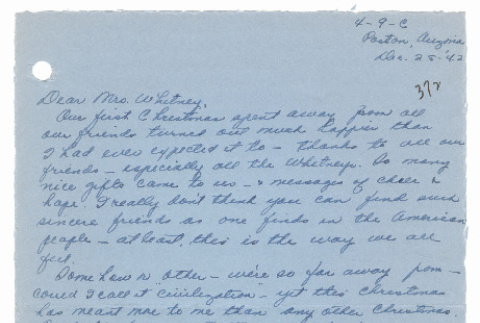 4-9-C
Poston, Arizona
Dec. 25 '42
372
Dear Mrs. Whitney,
Our first Christmas spent away from all
our friends turned out much happier than
I had ever expected it to - thanks to all our
friends - especially all the Whitneys. So many
nice gifts came to us - & messages of cheer &
hope. I really don't think you can find such
sincere friends as one finds in the American
people - at least, this is the way we all
feel.
Some how or other - we're so far away from -
could I call it "civilization" - yet this Christmas
has meant more to me than any other Christmas.